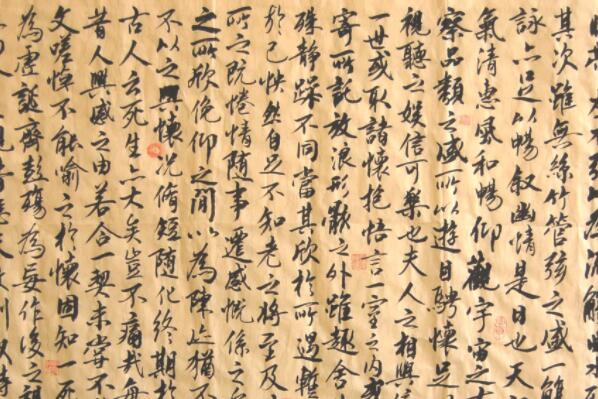 其次雖無絲竹管弦之盛一觴
詠亦足以暢敘幽情是日也天
氣清惠風和暢仰觀宇宙之大
察品類之盛所以遊目騁懷足
視聽之娛信可樂也夫人之相與
一世或取諸懷抱悟言一室之内
寄所託放浪形骸之外雖趣舍
殊靜躁不同當其欣於所遇暫
於己怏然自足不知老之將至及
所之既惓情随事遷感慨係之
之所欣俛仰之間以為陳迹猶不
不以之興懷況脩短随化終期於
古人云死生亦大矣豈不痛哉每
昔人興感之由若合一契未嘗不
文嗟悼不能喻之於懷固知一死
為虛誕齊彭殤為妄作後之視